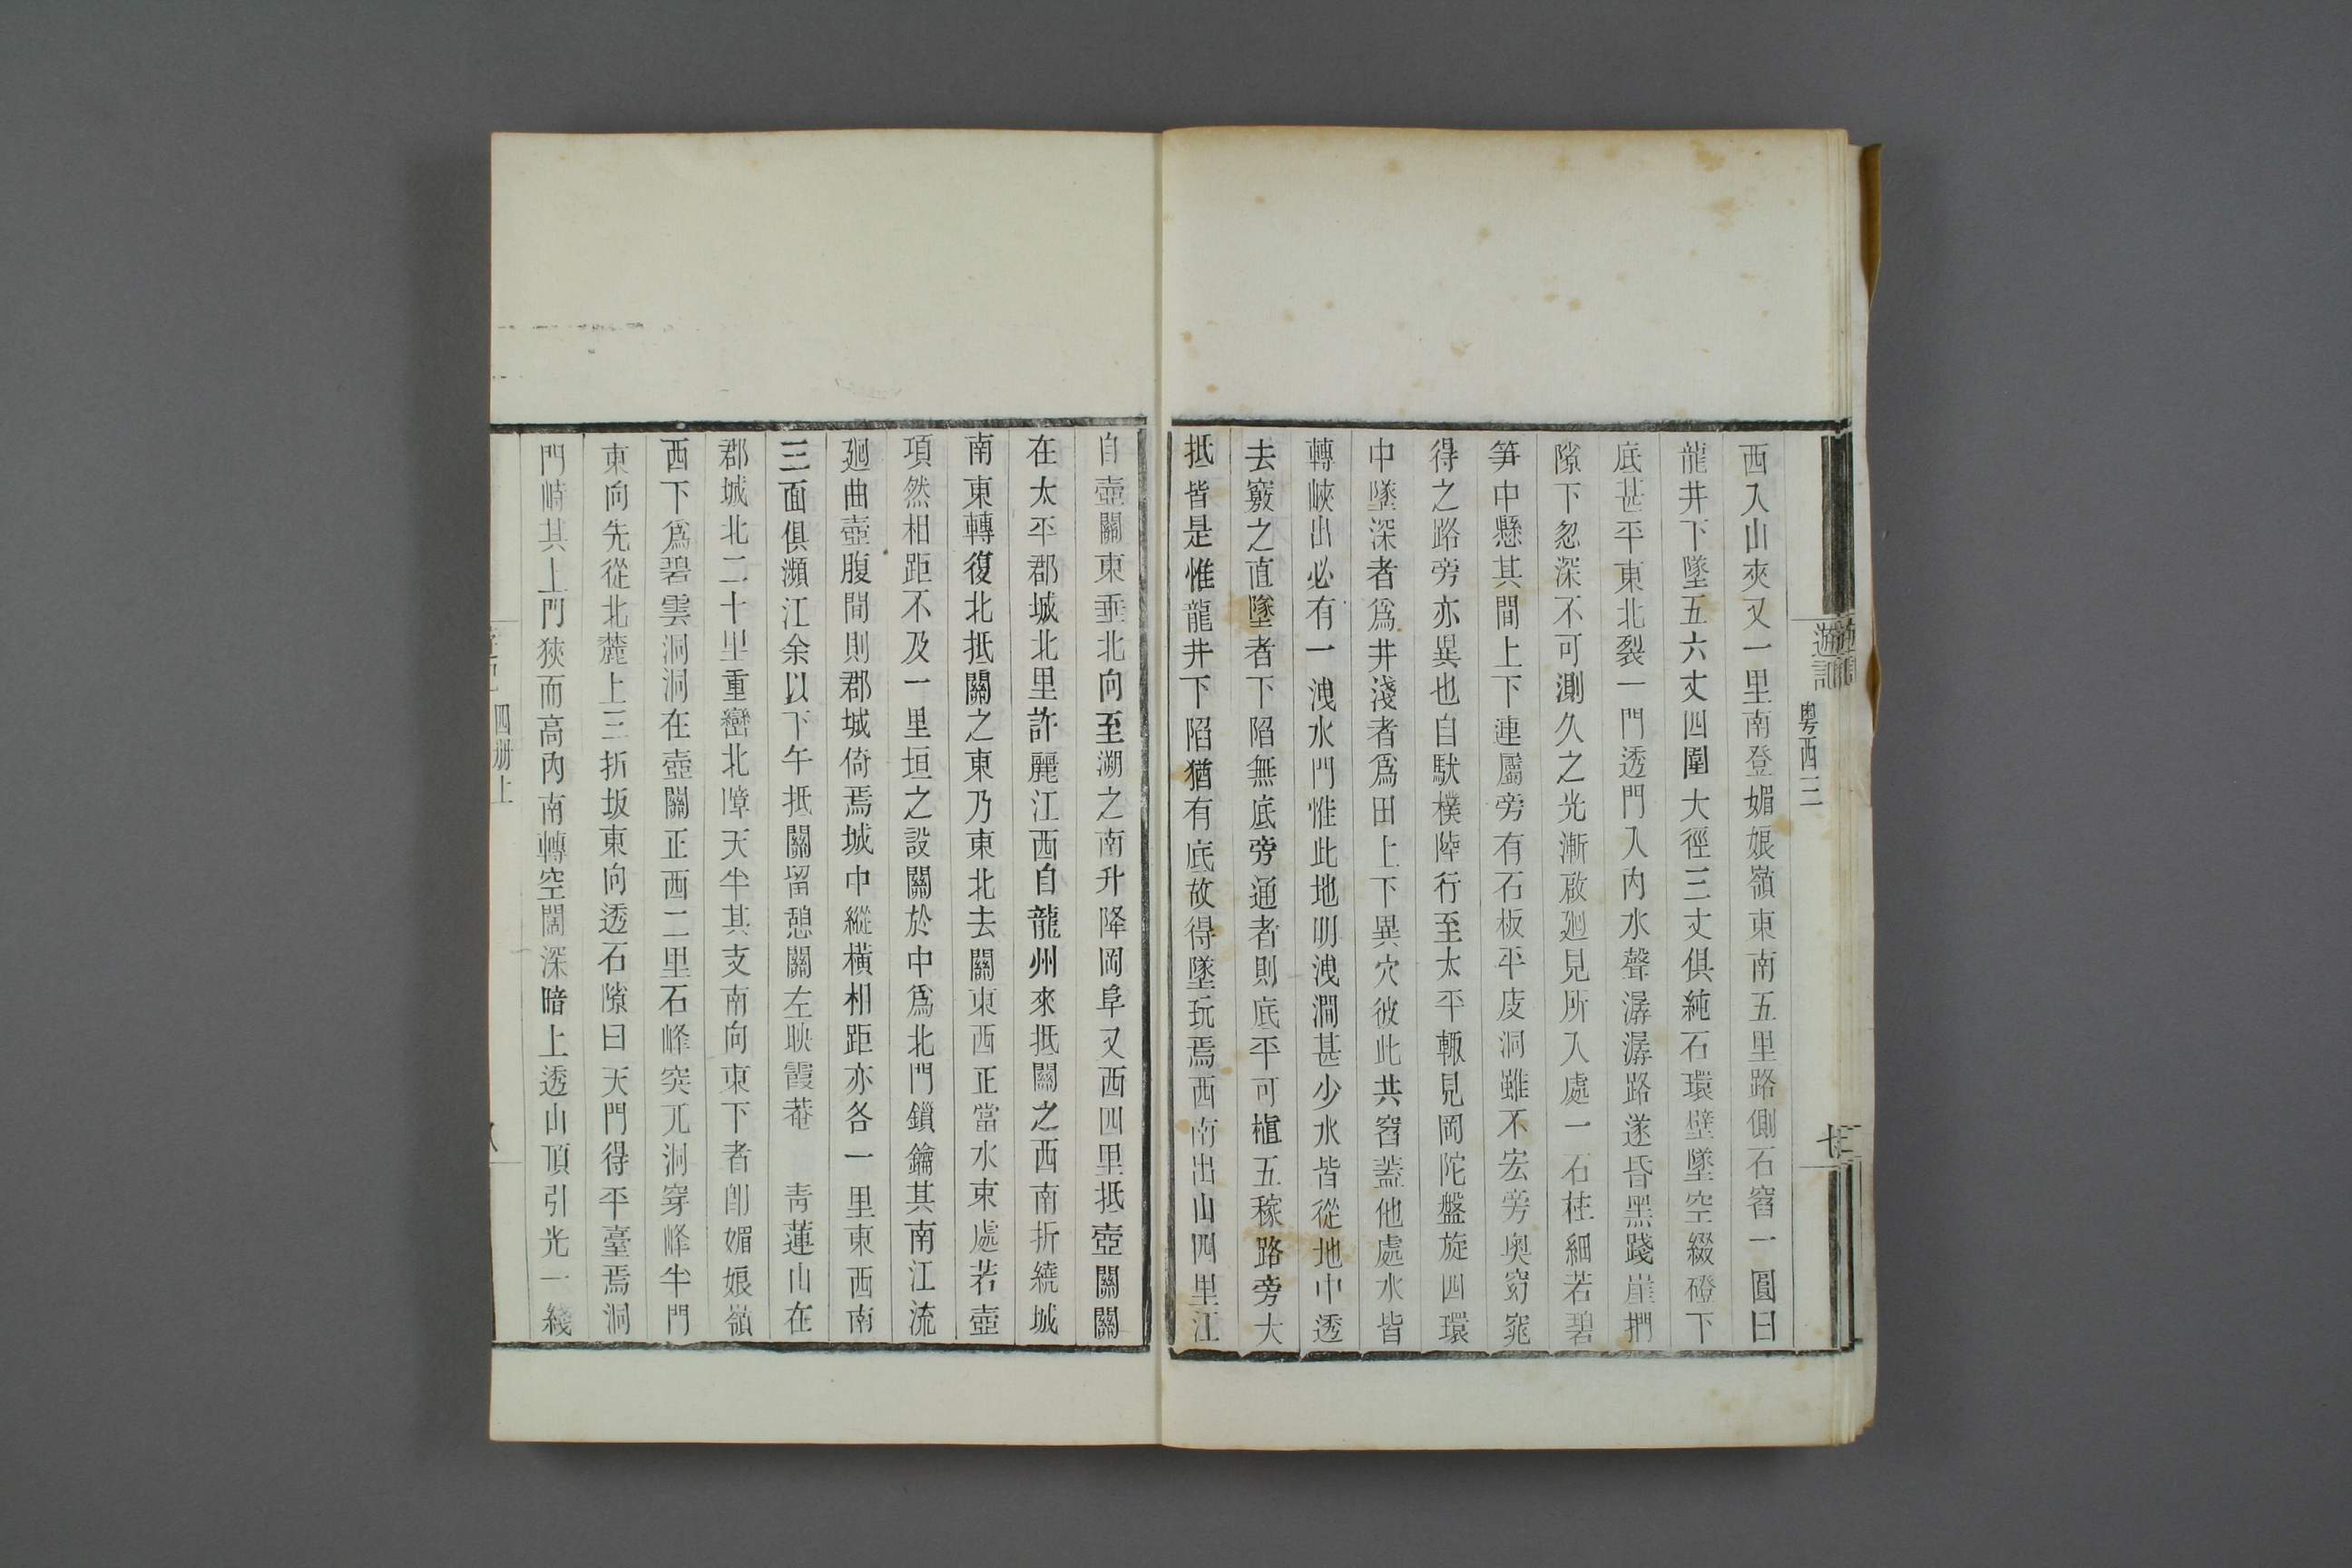 遊記
粤西三
七
西入山夾又一里南登媚娘嶺東南五里路側石窞一圓曰
龍井下墜五六丈四圍大徑三丈俱純石環壁墜空綴磴下
底甚平東北裂一門透門入内水聲潺潺路遂昏黑踐崖捫
隙下忽深不可測久之光漸啟廻見所入處一石柱細若碧
笋中懸其間上下連屬旁有石板平庋洞雖不宏旁奥窈窕
得之路旁亦異也自馱樸陸行至太平輙見岡陀盤旋四環
中墜深者爲井淺者爲田上下異穴彼此共窞葢他處水皆
轉峽出必有一洩水門惟此地明洩澗甚少水皆從地中透
去竅之直墜者下陷無底旁通者則底平可植五稼路旁大
抵皆是惟龍井下陷猶有底故得墜玩焉西南出山四里江
自壺關東垂北向至溯之南升降岡阜又西四里抵壺關關
在太平郡城北里許麗江西自龍州來抵關之西南折繞城
南東轉復北抵關之東乃東北去關東西正當水東處若壺
項然相距不及一里垣之設關於中爲北門鎖鑰其南江流
廻曲壺腹間則郡城倚焉城中縱橫相距亦各一里東西南
三面俱瀕江余以下午抵關留憩關左映霞菴　青蓮山在
郡城北二十里重巒北障天半其支南向東下者卽媚娘嶺
西下爲碧雲洞洞在壺關正西二里石峰突兀洞穿峰半門
東向先從北麓上三折坂東向透石隙曰天門得平臺焉洞
門峙其上門狹而高内南轉空闊深暗上透山頂引光一綫
四册上